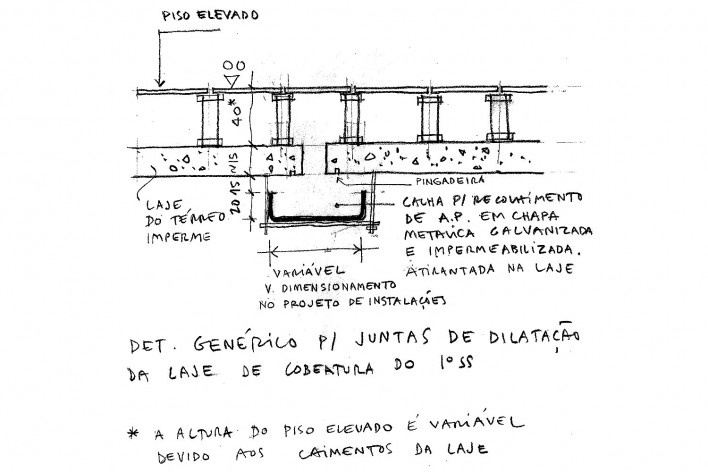 PISO ELEVADO
00
40*
~15
15
20
PINGADEIRA
LAJE
DO TÉRREO
IMPERME
CALHA P/ RECOLHIMENTO
DE A.P. EM CHAPA
METALICA GALVANIZADA
E IMPERMEABILIZADA.
ATIRANTADA NA LAJE
VARIÁVEL
V. DIMENSIONAMENTO
NO PROJETO DE INSTALAÇÕES
DET. GENÉRICO P/ JUNTAS DE DILATAÇÃO
DA LAJE DE COBERTURA DO 1º SS
* A ALTURA DO PISO ELEVADO É VARIÁVEL
DEVIDO AOS CAIMENTOS DA LAJE